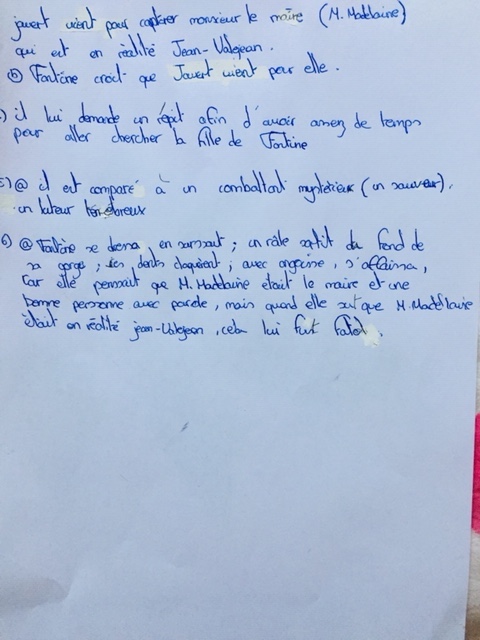 javert vient pour capturer monsieur le maire (M. Madelaine)
qui est en réalité Jean-Valejean.
b) Fantine croit que Javert vient pour elle.
) il lui demande un répit afin d'avoir assez de temps
pour aller chercher la fille de Fantine
5) a il est comparé à un combattant mystérieux (un sauveur),
un lutteur ténébreux
6) a Fantine se dressa en sursaut ; un râle sortit du fond de
sa gorge ; ses dents claquèrent ; avec angoisse, s'affaissa,
Car elle pensait que M. Madelaine était le maire et une
bonne personne avec parole, mais quand elle sut que M. Madelaine
était en réalité jean-Valejean, cela lui fut fatal.